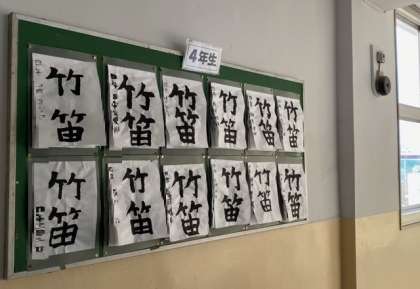 4年生
竹笛
竹笛
竹笛
竹笛
竹笛
竹笛
竹笛
竹笛
竹笛
竹笛
竹笛
竹笛